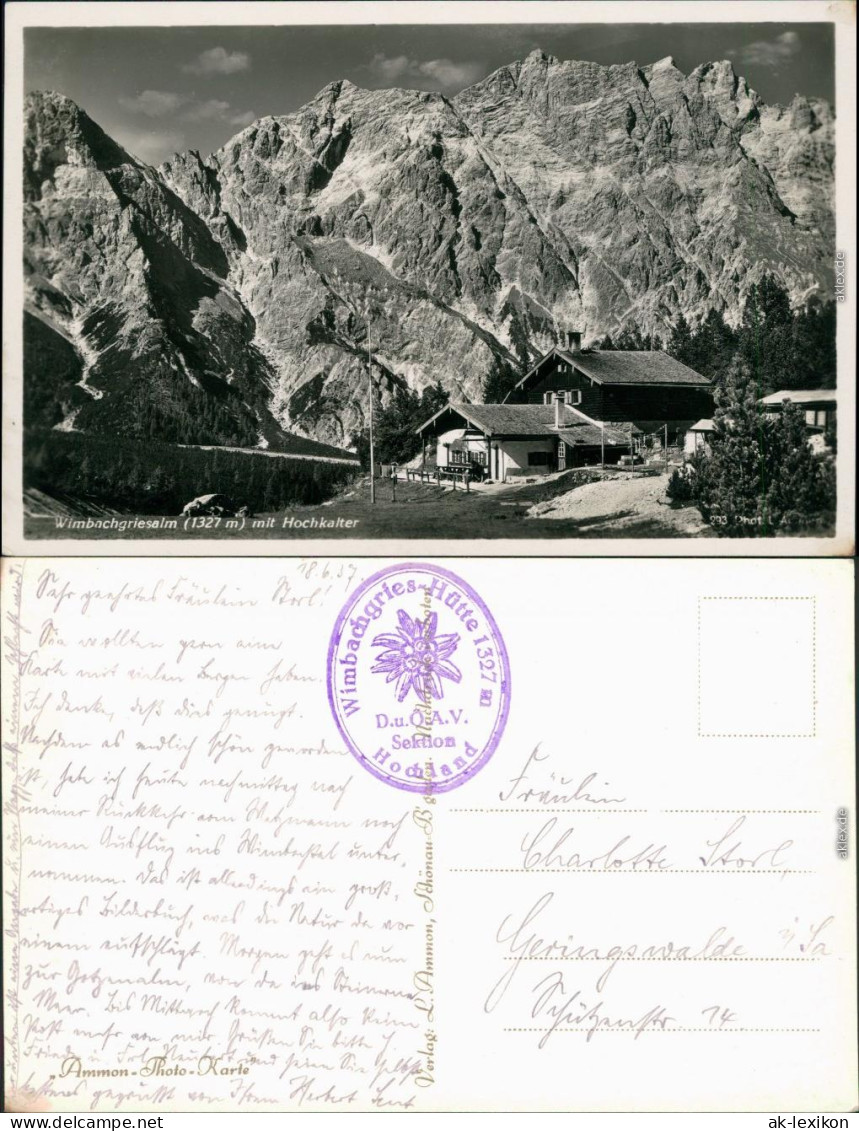 Wimbachgriesalm (1327 m) mit Hochkalter
993 Phot. L. Ammon
aklex.de
18.6.37.
Sehr geehrtes Fräulein Storl!
Sie wollten gern eine
Karte mit vielen Bergen haben.
Ich denke, daß dies genügt.
Nachdem es endlich schön geworden
ist, habe ich heute nachmittag nach
meiner Rückkehr vom Watzmann noch
einen Ausflug ins Wimbachtal unter-
nommen. Das ist allerdings ein groß-
artiges Bilderbuch, was die Natur da vor
einem aufschlägt. Morgen geht es nun
zur Gotzenalm, von da ins Steinerne
Meer. Bis Mittwoch kommt also keine
Post mehr von mir. Grüßen Sie bitte
Friedel und seien Sie selbst
bestens gegrüßt von Ihrem Herbert
Wimbachgries-Hütte 1327 m
D.u.Ö.A.V.
Sektion
Hochland
Verlag: L. Ammon, Schönau-B'gaden. Nachdruck verboten
"Ammon-Photo-Karte"
Fräulein
Charlotte Storl,
Geringswalde i/Sa
Schützenstr. 14.
aklex.de
www.delcampe.net
ak-lexikon